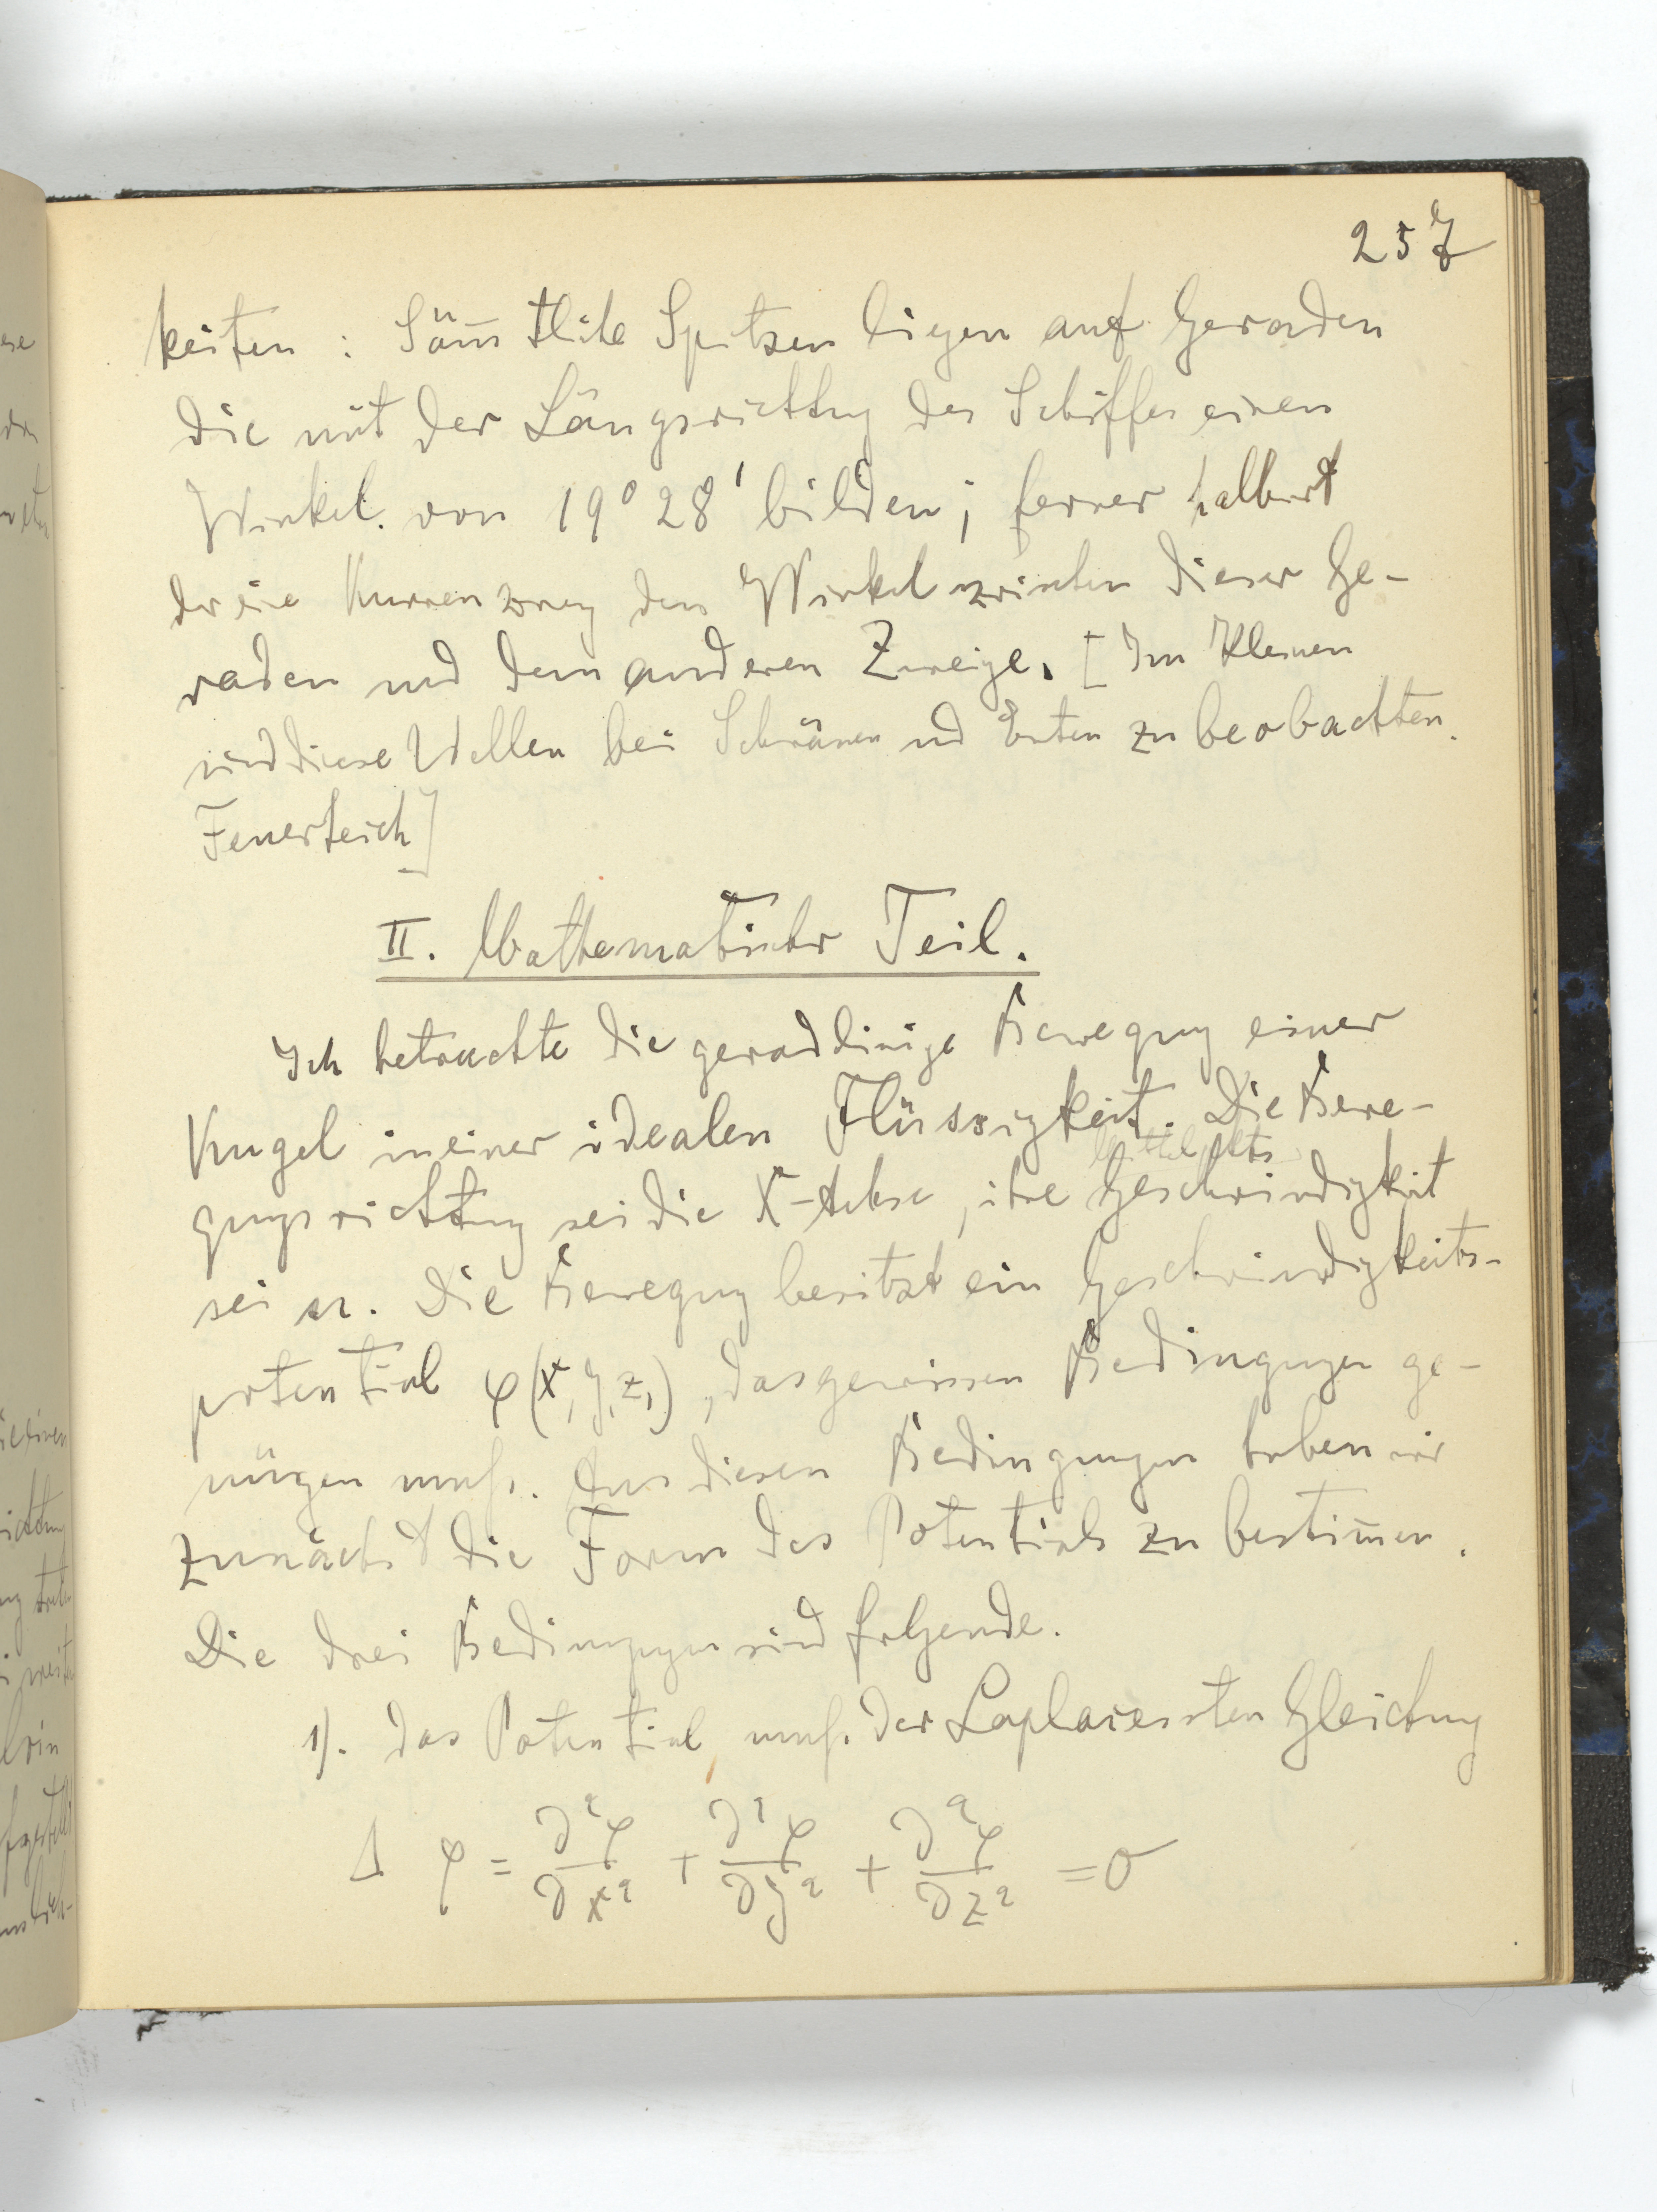 257
keiten : Säm̅tliche Spitzen liegen auf Geraden
die mit der Längsrichtung des Schiffes einen
Winkel von 19° 28' bilden; ferner halbiert
der eine Kurvenzweig den Winkel zwischen dieser Ge-
raden und dem anderen Zweige. [Im Kleinen
sind diese Wellen bei Schwänen und Enten zu beobachten.
Feuerteich]
II. Mathematischer Teil.
Ich betrachte die geradlinige Bewegung einer
Kugel in einer idealen Flüssigkeit. Die Bewe-
gungsrichtung sei die X-Achse, ihre Geschwindigkeit
sei u. Die Bewegung besitzt ein Geschwindigkeits-
potential φ(x, y, z,), das gewissen Bedingungen ge-
nügen muß. Aus diesen Bedingungen haben wir
zunächst die Form des Potentials zu bestim̅en.
Die drei Bedingungen sind folgende.
1). Das Potential muß der Laplaceschen Gleichung
Δ φ = ∂²φ/∂x² + ∂²φ/∂y² + ∂²φ/∂z² = 0